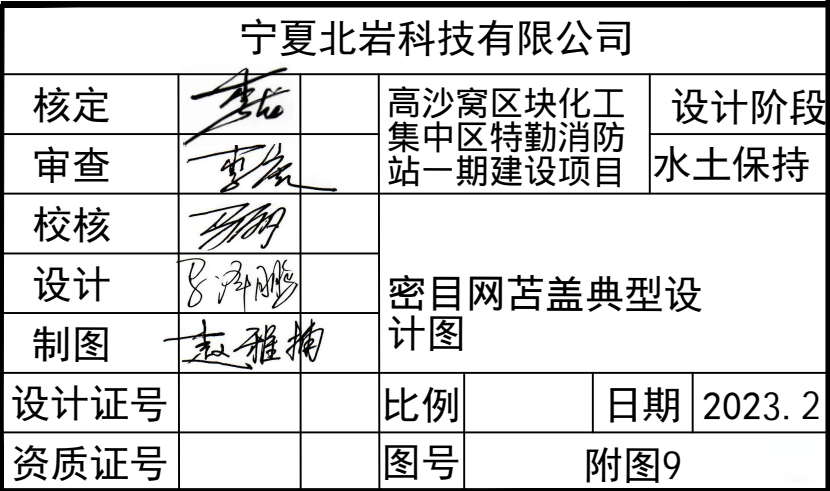 宁夏北岩科技有限公司
核定
高沙窝区块化工
集中区特勤消防
站一期建设项目
设计阶段
审查
水土保持
校核
设计
密目网苫盖典型设
计图
制图
设计证号
比例
日期
2023.2
资质证号
图号
附图9